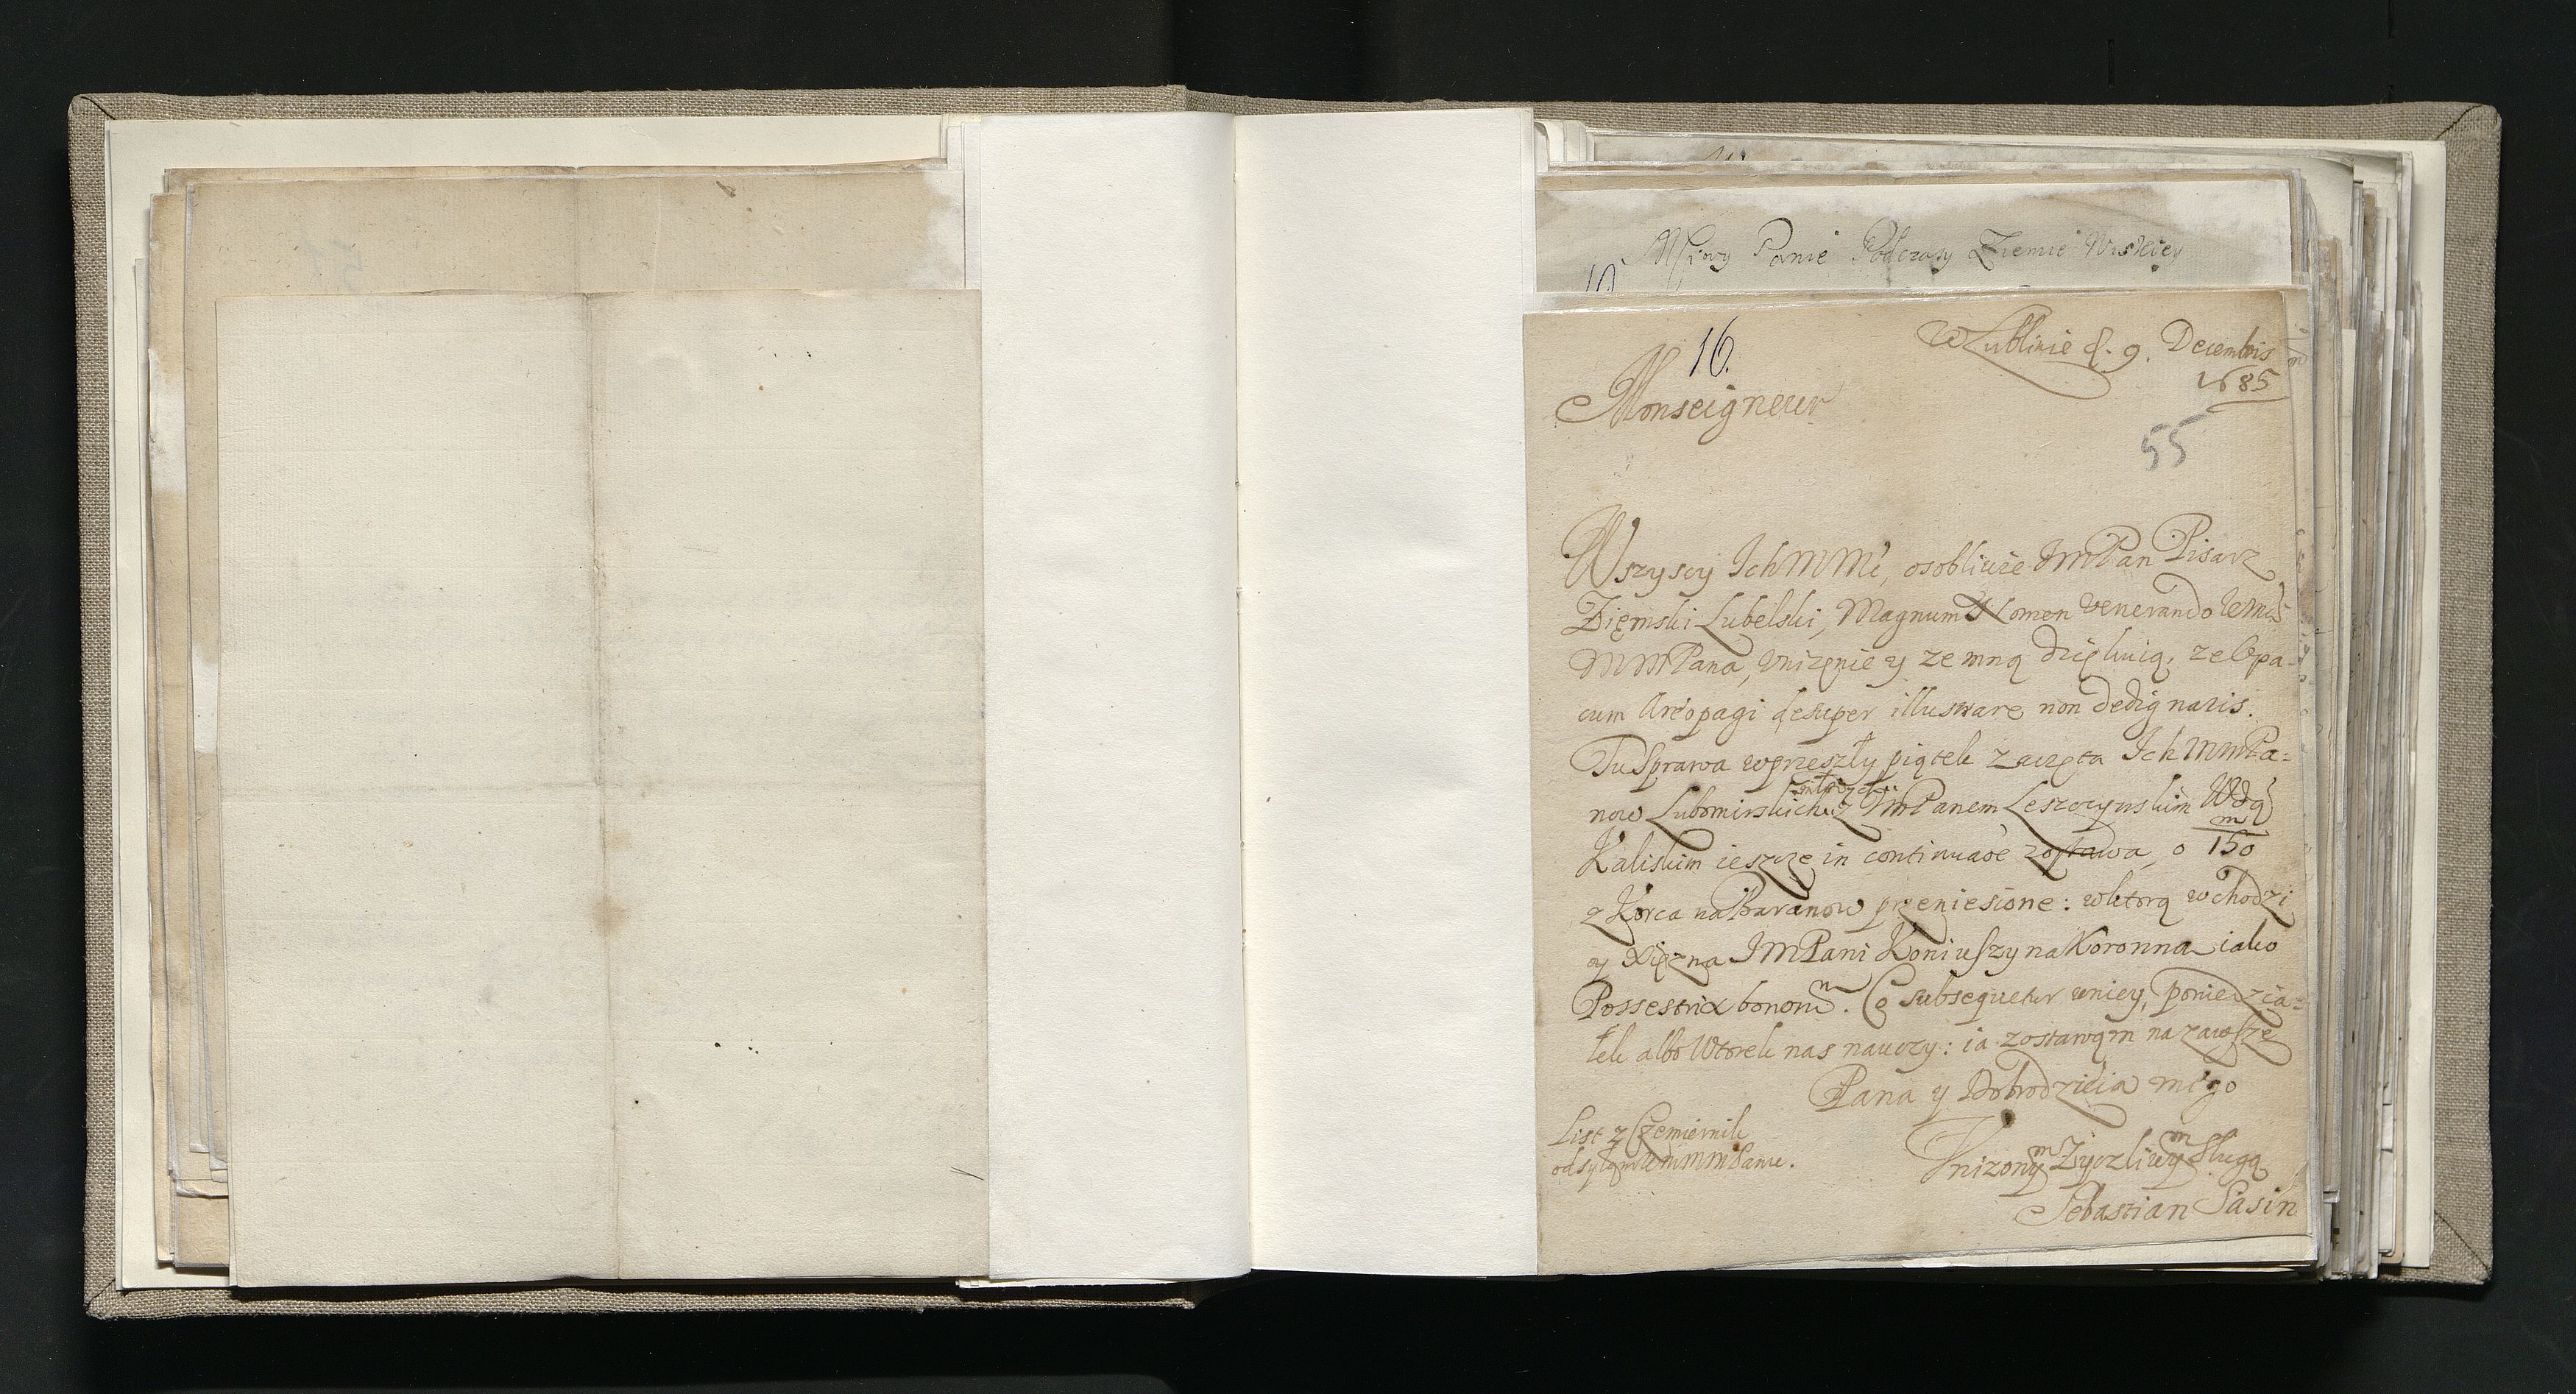 Mciwy Panie Podczasy Ziemie Wiskiey
16.
w Lublinie d. 9. Decembris
1685
Monseigneur
55
Wszyscy IchMMć, osobliwie JmPan Pisarz
Ziemski Lubelski, Magnum Nomen venerando WMć
MMPana, vnizenie y ze mną dziękuią, ze Opa-
cum Areopagi desuper illustrare non dedignaris.
Tu Sprawa w przeszły piątek zaczęta IchMmPa=
now Lubomirskich z JmPanem Leszczynskim Wdą
m
Kaliskim ieszcze in continuaōe zostawa, o 150
z Korca na Baranow przeniesione: w ktorą wchodzi
y Xiężna JMPani Koniuszyna Koronna iako
Possestrix bonorum. Co subsequetur w niey, poniedzia=
łek albo Wtorek nas nauczy: ia zostawam na zawsze
Pana y Dobrodzieia mego
List z Czemiernik
odsyłam WmMmPanu.
Vnizonym Zyczliwym Sługą
Sebastian Sasin